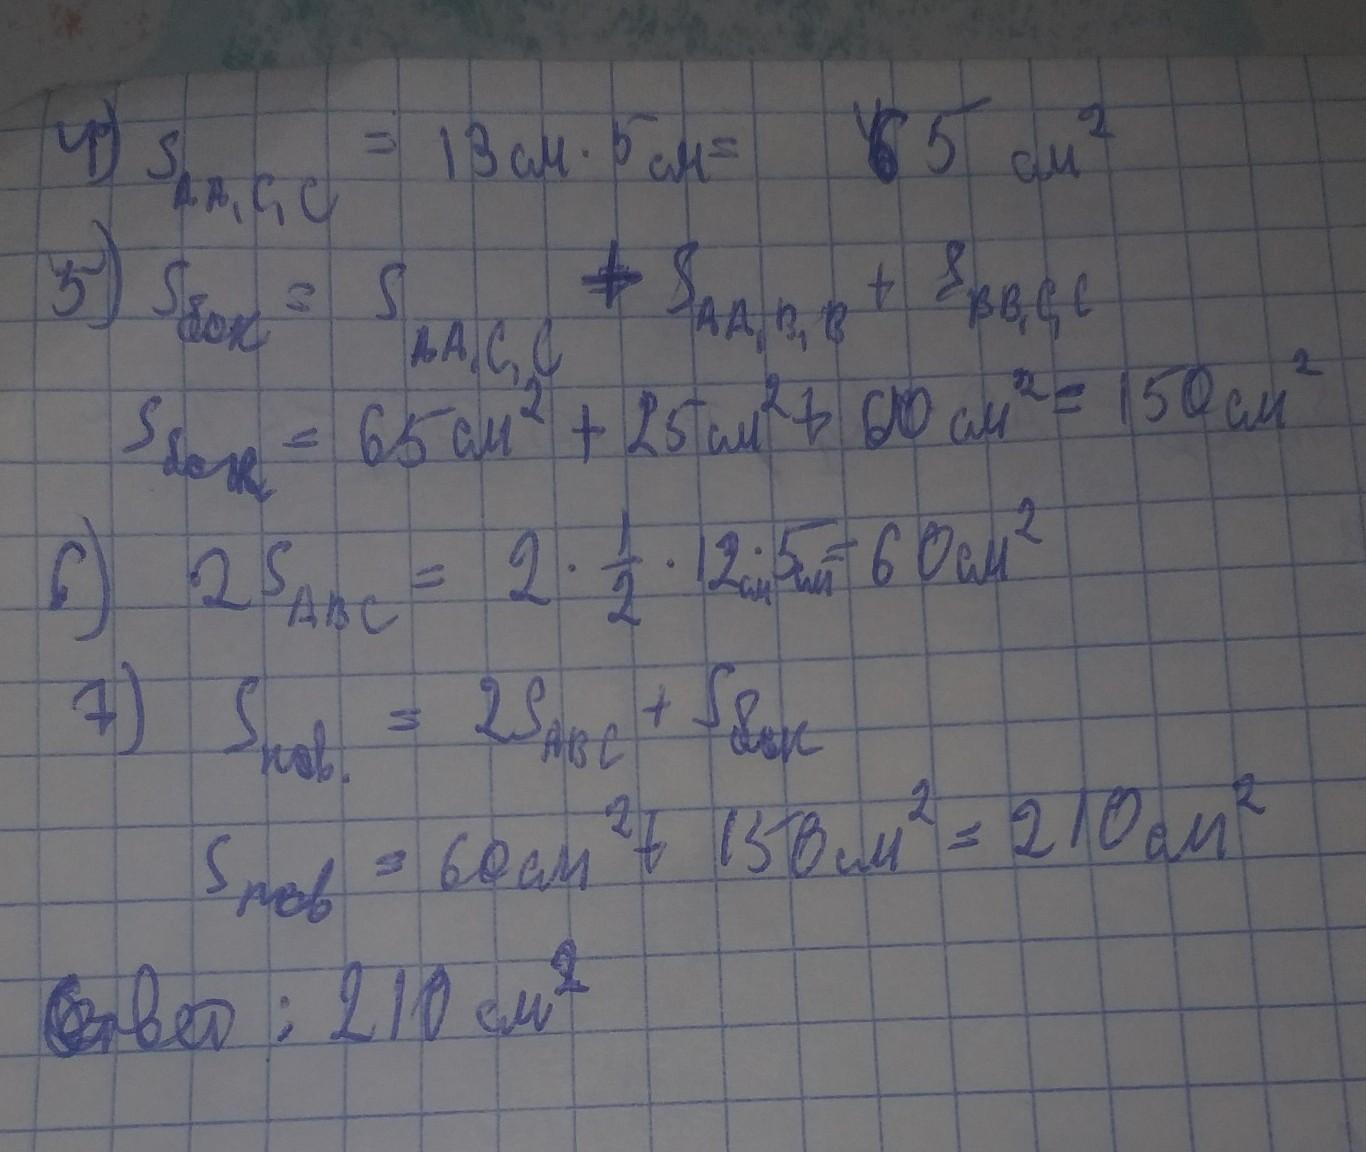 4) S_{AA₁C₁C} = 13см · 5см = 65 см²
5) S_{бок} = S_{AA₁C₁C} + S_{AA₁B₁B} + S_{BB₁C₁C}
S_{бок} = 65см² + 25см² + 60см² = 150см²
6) 2S_{ABC} = 2 · \frac{1}{2} · 12см · 5см = 60см²
7) S_{пов.} = 2S_{ABC} + S_{бок}
S_{пов} = 60см² + 150см² = 210см²
Ответ : 210 см²